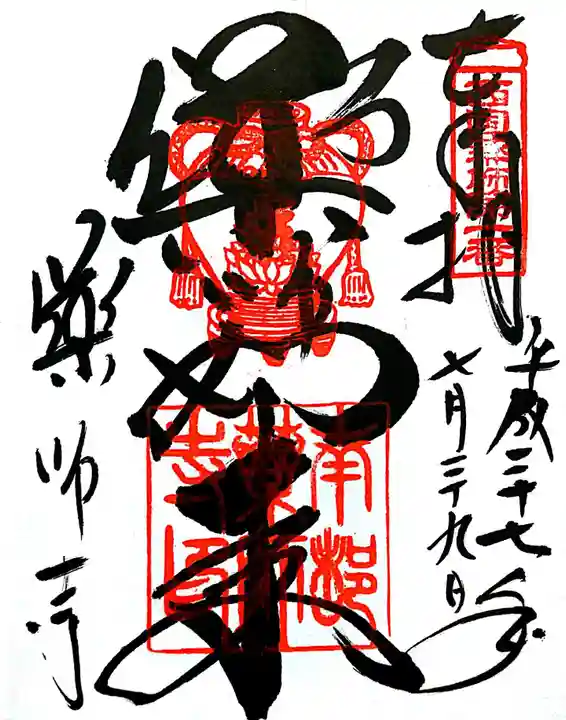 奉拝
西国薬師第一番
平成二十七年
七月二十九日
薬師如来
南都薬師寺印
薬師寺